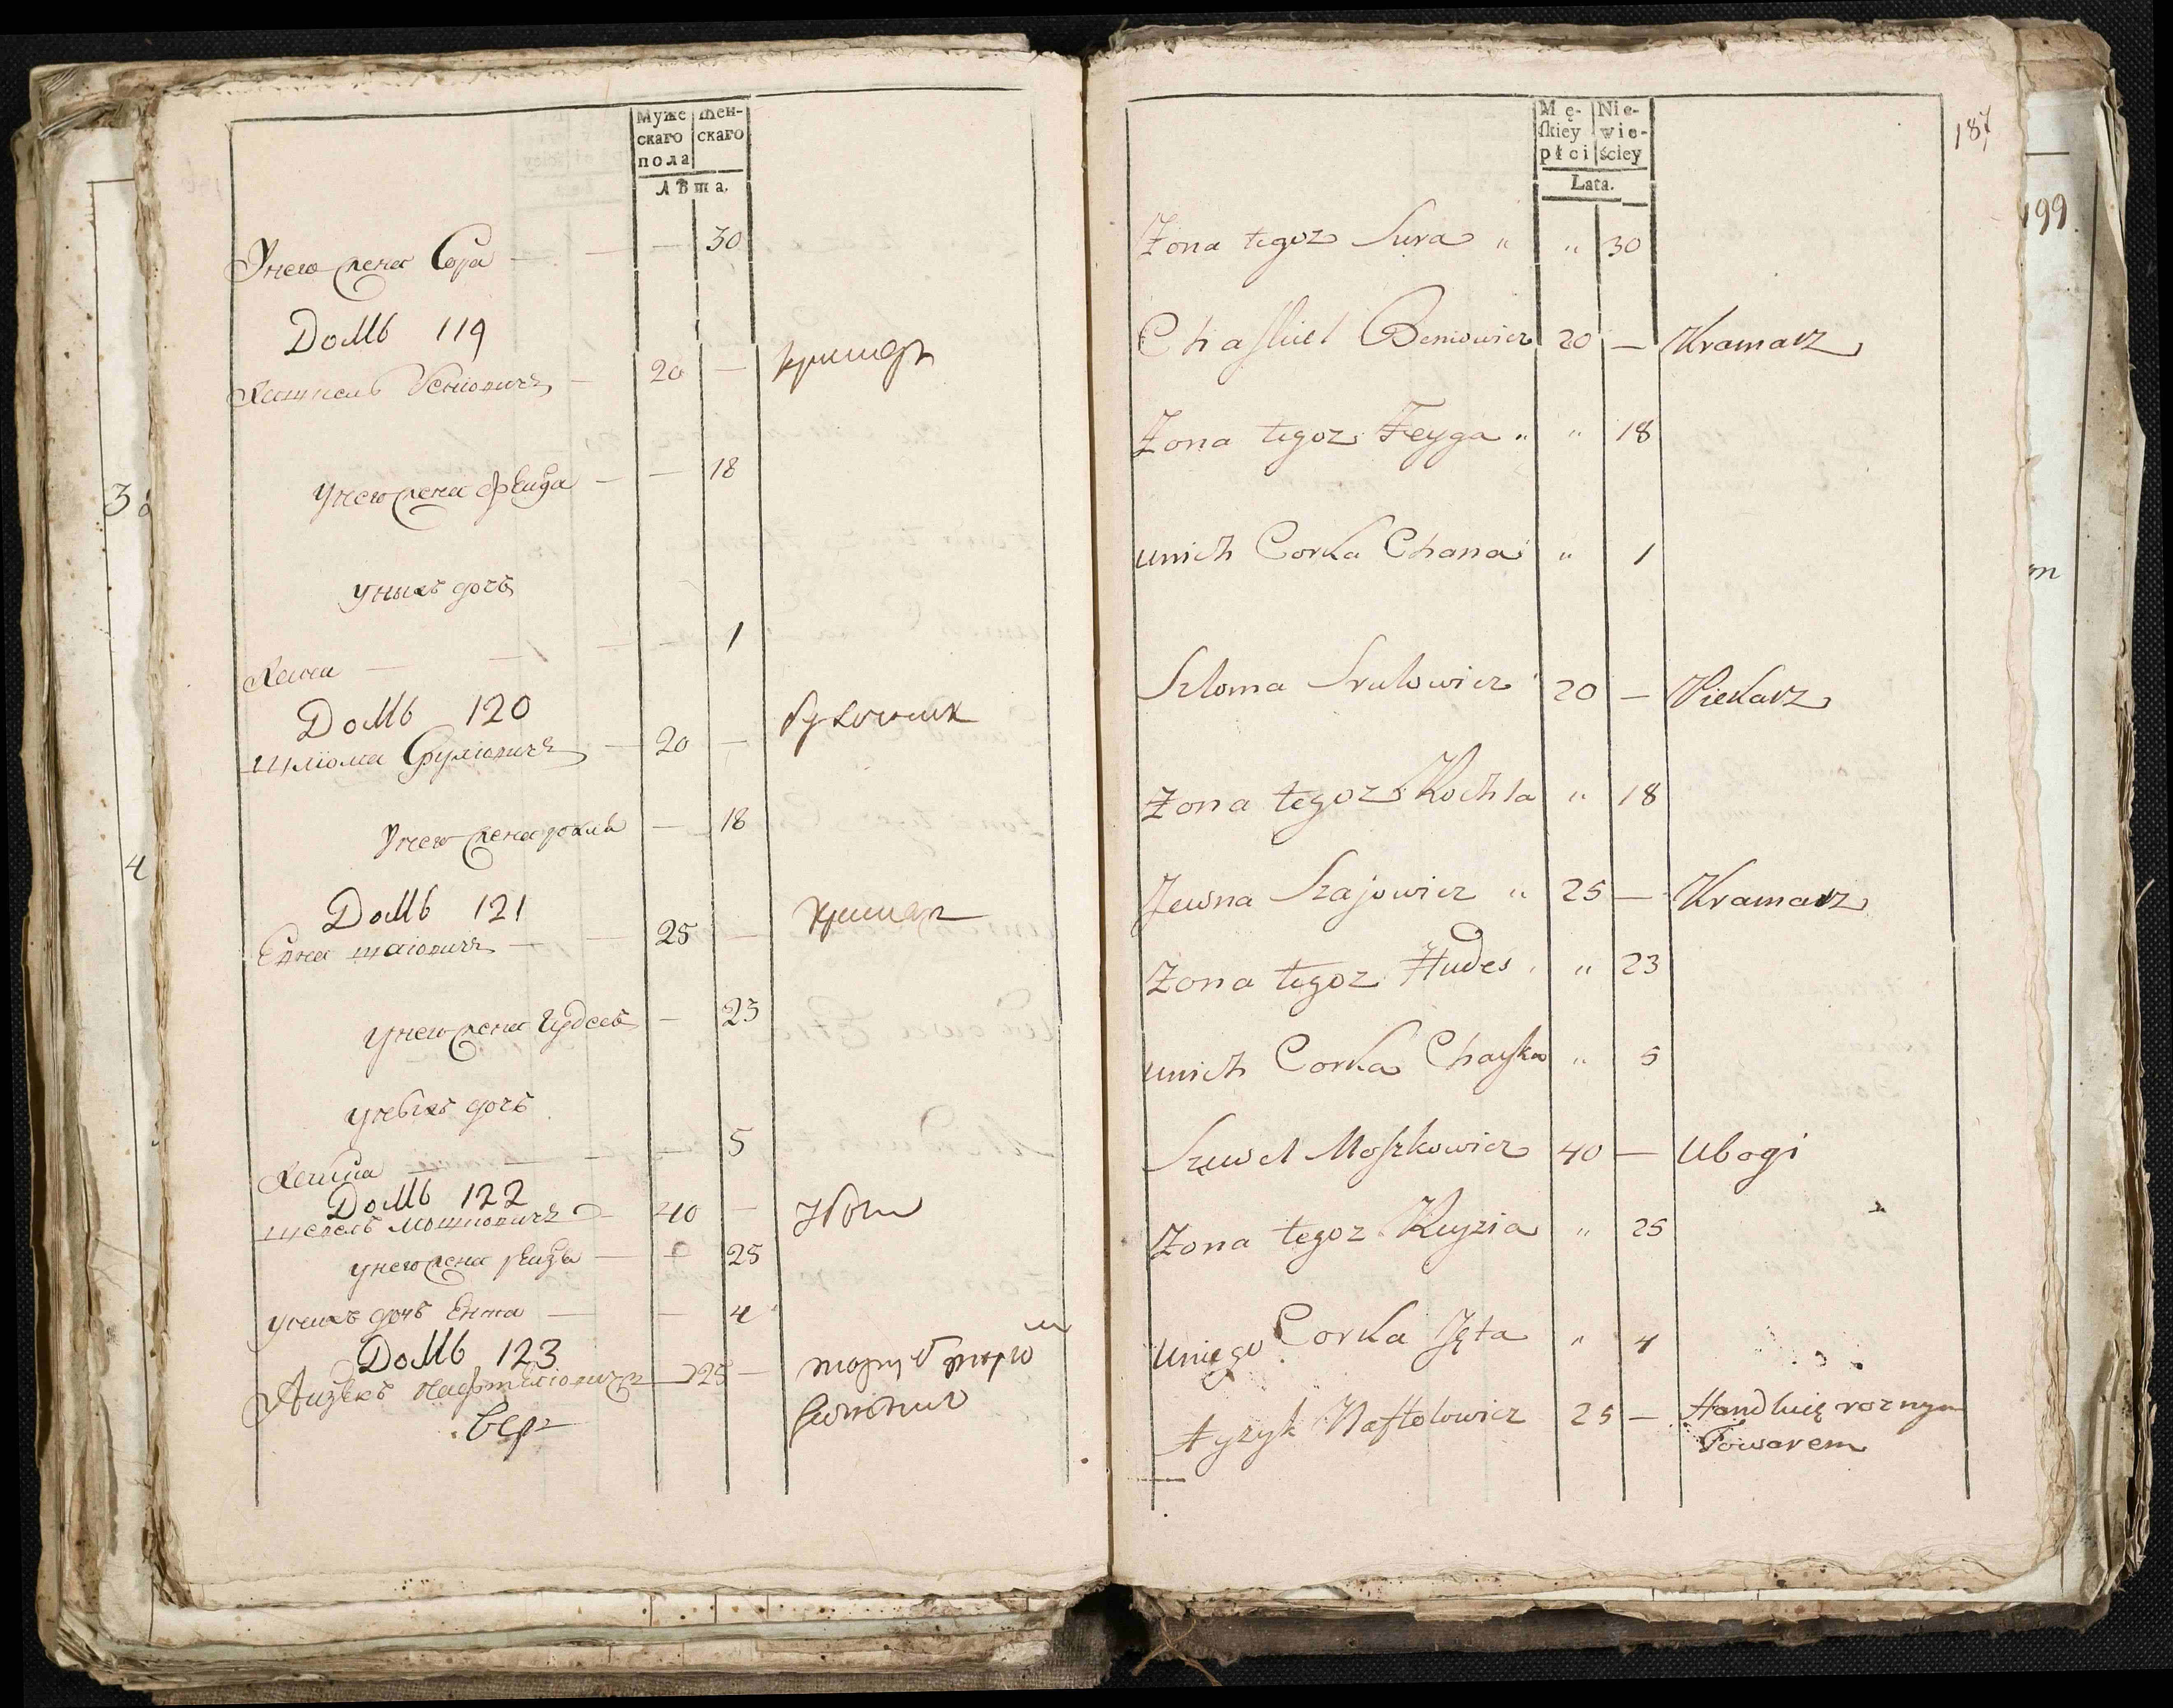 Муже Жен-
скаго скаго
пола
Лѣта.
У него жена Сора — — — 30
Домъ 119
Хашкель Бенiовичъ — 20 — крамарь
У него жена Фейга — — 18
У ныхъ дочь
Хана — — — — 1
Домъ 120
Шлiома Срулiовичъ — 20 —
У него жена Рохля — 18
Домъ 121
Евна Шаiовичъ — — 25 — крамар
У него жена Гудесь — 23
У ныхъ дочь
Хайка — — — — 5
Домъ 122
Шевель Мошковичъ — 40 — убоги
У него жена Рейзя — — 25
У нихъ дочь Ента — — 4
Домъ 123
Айзыкъ Нафтолiовичъ — 25 —
Mę- Nie-
skiey wie-
płci ściey
Lata.
187
199
Zona tegoz Sura " " 30
Chaskiel Beniowicz 20 — Kramarz
Zona tegoz Feyga " " 18
unich Corka Chana " 1
Szloma Srulowicz 20 — Piekarz
Zona tegoz Rochla " 18
Jewna Szajowicz " 25 — Kramarz
Zona tegoz Hudes " " 23
unich Corka Chayka " 5
Szewel Moszkowicz 40 — Ubogi
Zona tegoz Reyzia " 25
uniego Corka Jęta " 4
Ayzyk Naftolowicz 25 — Handluię roznym
Towarem